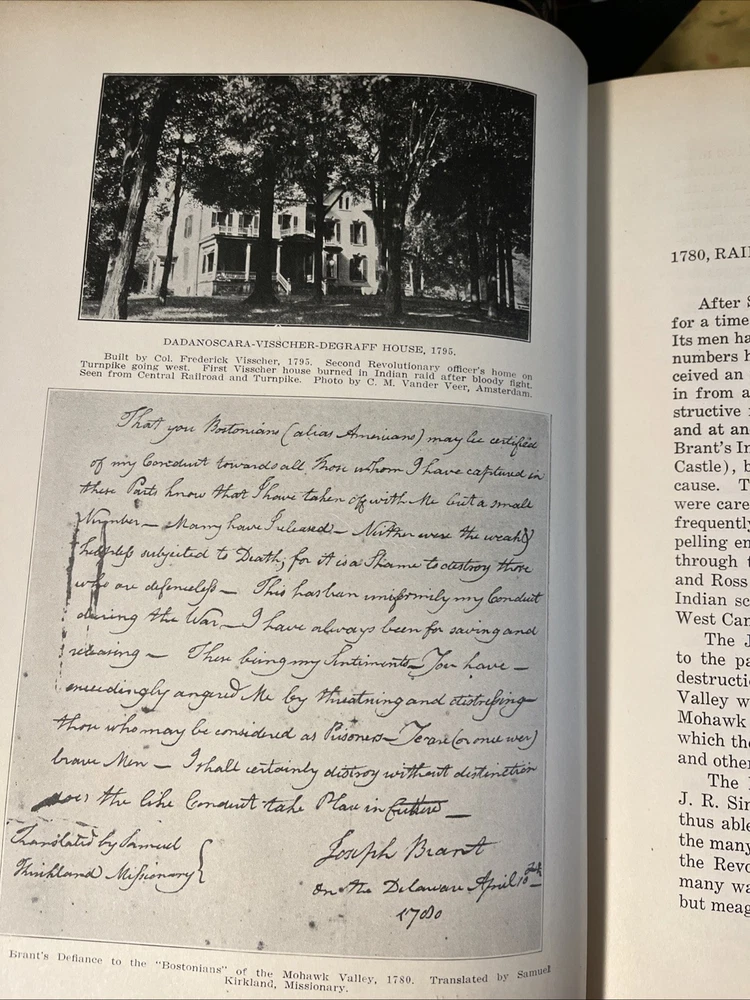 DADANOSCARA-VISSCHER-DEGRAFF HOUSE, 1795.
Built by Col. Frederick Visscher, 1795. Second Revolutionary officer's home on
Turnpike going west. First Visscher house burned in Indian raid after bloody fight.
Seen from Central Railroad and Turnpike. Photo by C. M. Vander Veer, Amsterdam.
That you Bostonians (alias Americans) may be certified
of my Conduct towards all those whom I have captured in
these Parts know that I have taken off with Me but a small
Number — Many have I released — Neither were the weak &
helpless subjected to Death, for it is a Shame to destroy those
who are defenceless — This has been uniformily my Conduct
during the War — I have always been for saving and
releasing — These being my Sentiments — You have —
exceedingly angered Me by threatning and distressing
those who may be considered as Prisoners — Ye are (or once wer)
brave Men — I shall certainly destroy without distinction
does the like Conduct take Place in future —
Translated by Samuel
Kirkland Missionary
Joseph Brant
on the Delaware April 10th
1780
Brant's Defiance to the "Bostonians" of the Mohawk Valley, 1780. Translated by Samuel
Kirkland, Missionary.
1780, RAI
After S
for a time
Its men ha
numbers h
ceived an
in from a
structive
and at an
Brant's In
Castle), b
cause. T
were care
frequently
pelling en
through t
and Ross
Indian sc
West Can
The J
to the pa
destructi
Valley w
Mohawk
which the
and other
The
J. R. Sir
thus able
the many
the Revo
many wa
but meag